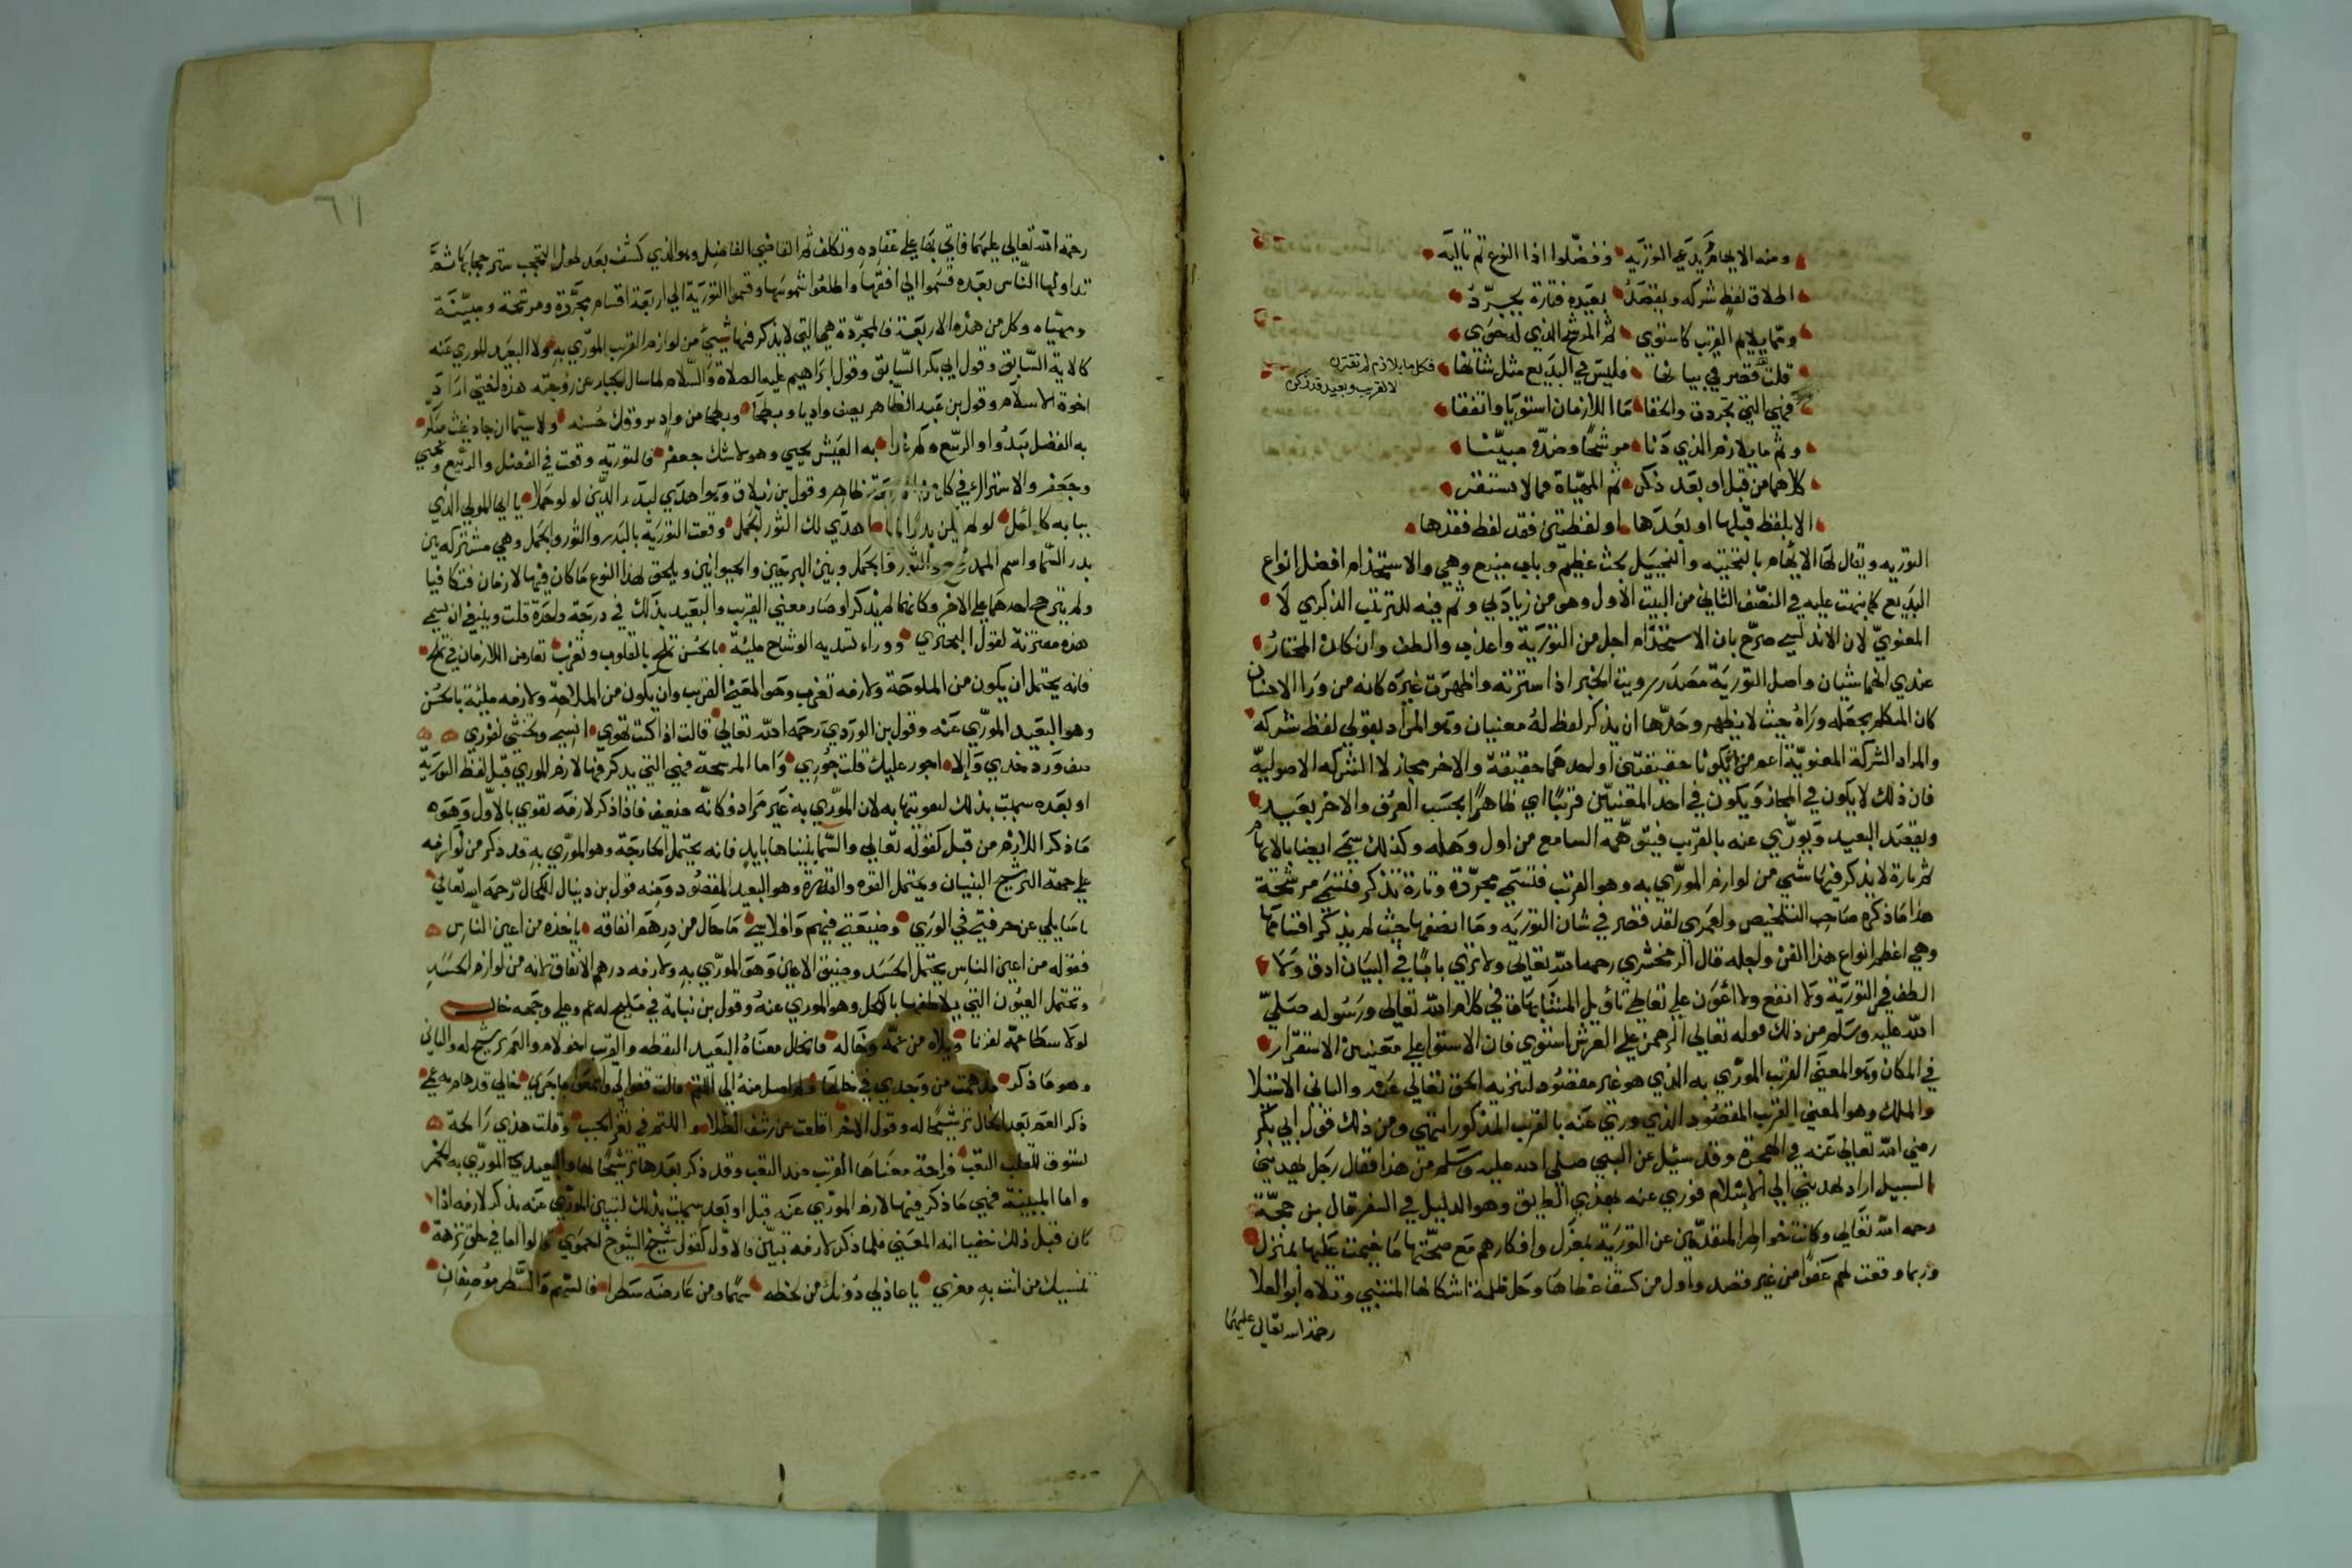 ومنه الايهام يدعي التوريه وفضلوا اذا النوع ثم تاليه
اطلاق لفظ شركه ويقصد بعيده فتارة يجرد
ومما يلايم القريب كاستوي ثم المرشح الذي له حوي
قلت لقد قصر في بيانها فليس في البديع مثل شانها
فكل ما يلازم لم يقترن
لا لقريب وبعيد قد زكن
فهي التي تجردت والحقا ما اللازمان استويا واتفقا
وثم ما يلازم الذي دنا مرشحا وضده مبينا
كلاهما من قبل او بعد ذكر ثم المهياة فما لا تستقر
الا بلفظ قبلها او بعدها او لفظتين فقد لفظ فقدها
التوريه ويقال لها الايهام بالتحتيه والتخييل بحث عظيم وباب منيع وهي والاستخدام افضل انواع
البديع كما نبهت عليه في النصف الثاني من البيت الاول وهو من زيادتي وثم فيه للترتيب الذكري لا
المعنوي لان الاندلسي صرح بان الاستخدام اجل من التورية واعذب والطف وان كان المختار
عندي انهما سيان واصل التورية مصدر وريت الخبر اذا سترته واظهرت غيره كانه من ورا الانسان
كان المتكلم يجعله وراه حيث لا يظهر وحدها ان يذكر لفظ له معنيان وهو المراد بقولي لفظ شركه
والمراد الشركة المعنوية اعم من ان يكونا حقيقتين او احدهما حقيقة والاخر مجاز لا الشركه الاصوليه
فان ذلك لا يكون في المجاز ويكون في احد المعنيين قريبا اي ظاهرا بحسب العرف والاخر بعيد
ويقصد البعيد ويوري عنه بالقريب فيتوهمه السامع من اول وهله وكذلك سمي ايضا بالايهام
ثم تارة لا يذكر فيها شي من لوازم الموري به وهو القريب فتسمي مجردة وتارة تذكر فتسمي مرشحة
هذا ما ذكره صاحب التلخيص ولعمري لقد قصر في شان التوريه وما انصفها حيث لم يذكر اقسامها
وهي اعظم انواع هذا الفن ولجله قال الزمخشري رحمه الله تعالي ولا تري بابا في البيان ادق ولا
الطف من التورية ولا انفع ولا اعون علي تعاطي تاويل المتشابهات في كلام الله تعالي ورسوله صلي
الله عليه وسلم من ذلك قوله تعالي الرحمن علي العرش استوي فان الاستوا علي معنيين الاستقرار
في المكان وهو المعني القريب الموري به الذي هو غير مقصود لتنزيه الحق تعالي عنه والثاني الاستيلا
والملك وهو المعني القريب المقصود الذي وري عنه بالقريب المذكور انتهي ومن ذلك قول ابي بكر
رضي الله تعالي عنه في الهجرة وقد سئل عن النبي صلي الله عليه وسلم من هذا فقال رجل يهديني
السبيل اراد يهديني الي الاسلام فوري عنه بهذي الطريق وهو الدليل في السفر قال بن حجة
رحمه الله تعالي وكانت خواطر المتقدمين عن التورية بمعزل وافكارهم مع صحتها ما خيمت عليها بمنزل
وربما وقعت لهم عفوا من غير قصد واول من كشف غطاها وحل ظلمة اشكالها المتنبي وتلاه ابو العلا
رحمة الله تعالي عليهما
٦١
رحمة الله تعالي عليهما فاتي بها علي عقاده وتكلف ثم القاضي الفاضل وهو الذي كشف بعد طول التحجب ستر حجابها ثم
تداولها الناس بعده فسموا الي افقها واطلعوا شموسها وقسموا التورية الي اربعة اقسام مجردة ومرشحة ومبينة
ومهياه وكل من هذه الاربعة فالمجردة هي التي لا يذكر فيها شيئ من لوازم القريب الموري به ولا البعيد الموري عنه
كالاية السابق وقول ابي بكر السابق وقول ابراهيم عليه الصلاة والسلام لما سال الجبار عن زوجته هذه اختي اراد
اخوة الاسلام وقول بن عبد الظاهر يصف واديا وبطحا وبطحا من واد يروقك حسنه ولا سيما ان جاد غيث مبكر
به الفضل يبدو والربيع وكم غدا به العيش يحيي وهو لا شك جعفر فالتوريه وقعت في الفضل والربيع ويحيي
وجعفر والاشتراك في كل من هذه الاربعة ظاهر وقول بن زيلاق وقد اهدي لبدر الدين لولو حملا يا ايها المولي الذي
ببابه كل امل لو لم يكن بدرا لما اهدي لك الثور الحمل وقعت التورية بالبدر والثور والحمل وهي مشتركه بين
بدر السما واسم الممدوح والثور والحمل وبين البرجين والحيوانين ويلحق بهذا النوع ما كان فيها لازمان فتكافيا
ولم يترجح احدهما علي الاخر وكانهما لم يذكرا وصار معني القريب والبعيد بذلك في درجة واحدة قلت وينبغي ان تسمي
هذه مقترنة لقول البحتري ووراء تسديه الوشاح مليئة بالحسن تملح بالقلوب وتعذب تعارض اللازمان في تملح
فانه يحتمل ان يكون من الملوحة ولازمه تعذب وهو المعني القريب وان يكون من الملاحة ولازمه مليئة بالحسن
وهو البعيد الموري عنه وقول بن الوردي رحمه الله تعالي قالت اذا كنت تهوي انسي وتخشي نفوري
صف ورد خدي والا اجور عليك قلت جوري واما المرشحة فهي التي يذكر فيها لازم الموري قبل لفظ التوريه
او بعده سميت بذلك لتقويتها به لان الموري به غير مراد فكانه ضعيف فاذا ذكر لازمه تقوي بالاول وهو
ما ذكر اللازم من قبل كقوله تعالي والسما بنيناها بايد فانه يحتمل الجارحة وهو الموري به وقد ذكر من لوازمه
علي جهة الترشيح البنيان ويحتمل القوه والقدرة وهو البعيد المقصود ومنه قول بن دينال الكحال رحمه الله تعالي
يا سايلي عن حرفتي في الوري وضيعتي فيهم وافلاسي ما حال من درهم انفاقه ياخذه من اعين الناس
فقوله من اعين الناس يحتمل الحسد وضيق الاعين وهو الموري به ولازمه درهم الانفاق لانه من لوازم الحسد
وتحتمل العيون التي يلاطفها بالكحل وهو الموري عنه وقول بن نباتة في مليح له عم وعلي وجهه خال
وهو ما ذكر
ذكر الغم بعد الخال ترشيحا له وقول الاخر اقلعت عن رشف الطلا واللثم في ثغر الحبب وقلت هذي راحة
تسوق للقلب التعب فراحة معناها القريب ضد التعب وقد ذكر بعدها ترشيحا لها والبعيد الموري به الخمر
واما المبينة فهي ما ذكر فيها لازم الموري عنه قبل او بعد سميت بذلك لتبيين الموري عنه بذكر لازمه اذا
كان قبل ذلك خفيا انه المعني فلما ذكر لازمه تبين فالاول كقول شيخ الشيوخ لحموي قالوا اما في جلق نزهة
تنسيك من انت به مغري يا عاذلي دونك من لحظه سهما ومن عارضه سطرا فالسهم والسطر موضعان